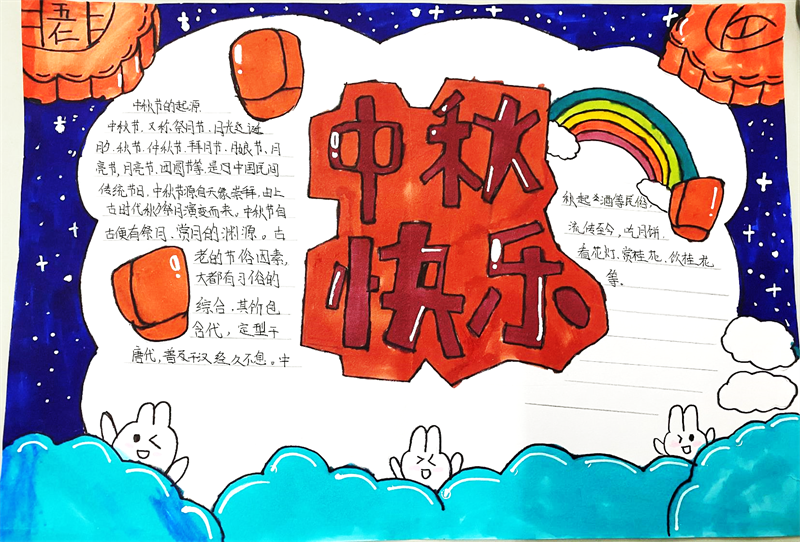 五仁
中秋快乐
中秋节的起源
中秋节、又称祭月节、月光诞
秋节、仲秋节、拜月节、月娘节、月
亮节、月亮节、团圆节等,是中国民间
传统节日。中秋节源自天象崇拜,由上
古时代秋夕祭月演变而来。中秋节自
古便有祭月、赏月的渊源。古
老的节俗因素,
大都有习俗的
综合,其所包
含代,定型于
唐代,普及于汉经久不息。中
秋起 酒等民俗
流传至今,吃月饼
看花灯、赏桂花、饮桂花
等。